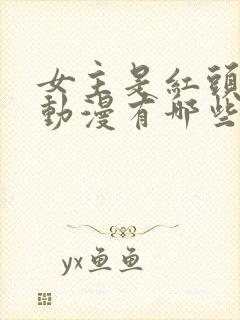 女主是紅頭
動漫有哪些
yx鱼鱼